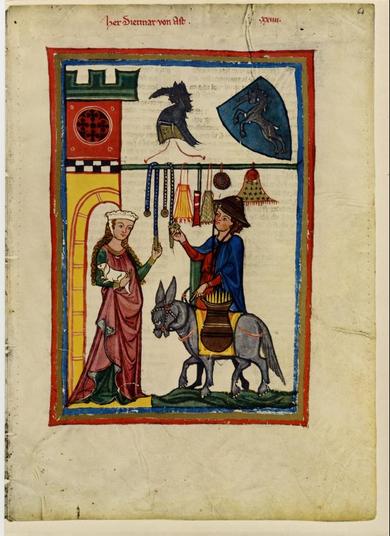 64
her Dietmar von Ast . xxiiii.